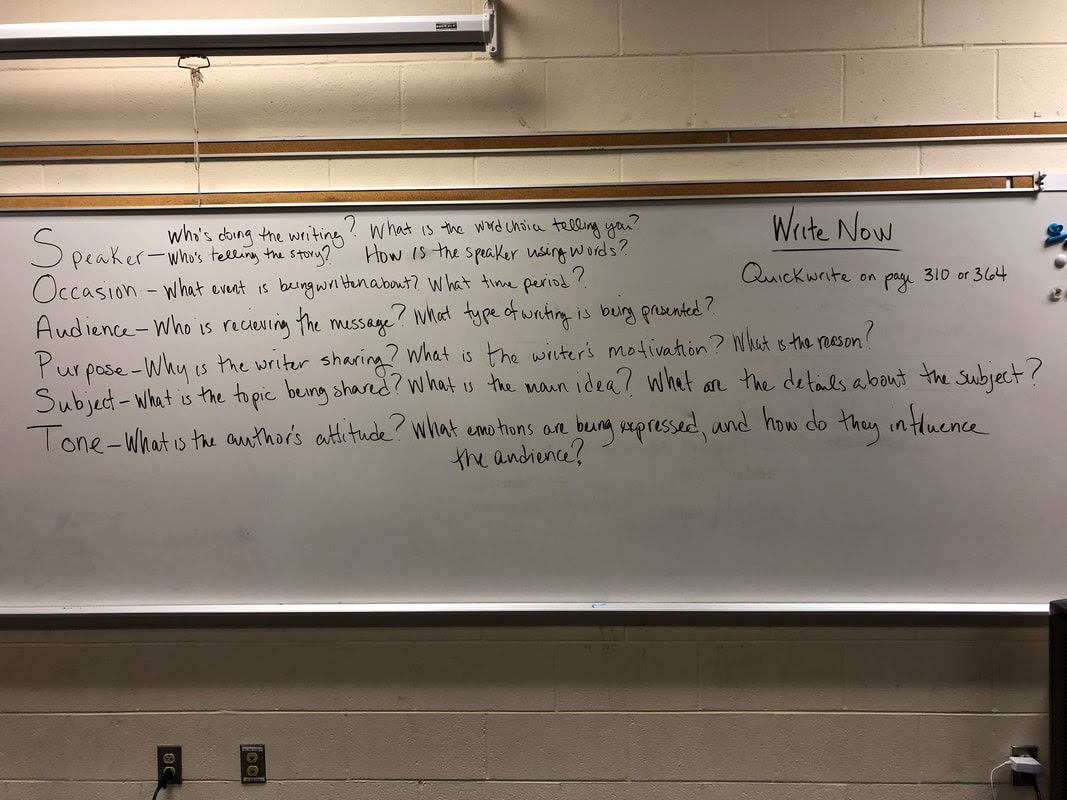 Who's doing the writing? What is the word choice telling you?
Speaker – Who's telling the story? How is the speaker using words?
Occasion – What event is being written about? What time period?
Audience – Who is recieving the message? What type of writing is being presented?
Purpose – Why is the writer sharing? What is the writer's motivation? What is the reason?
Subject – What is the topic being shared? What is the main idea? What are the details about the subject?
Tone – What is the author's attitude? What emotions are being expressed, and how do they influence
the audience?
Write Now
Quickwrite on page 310 or 364